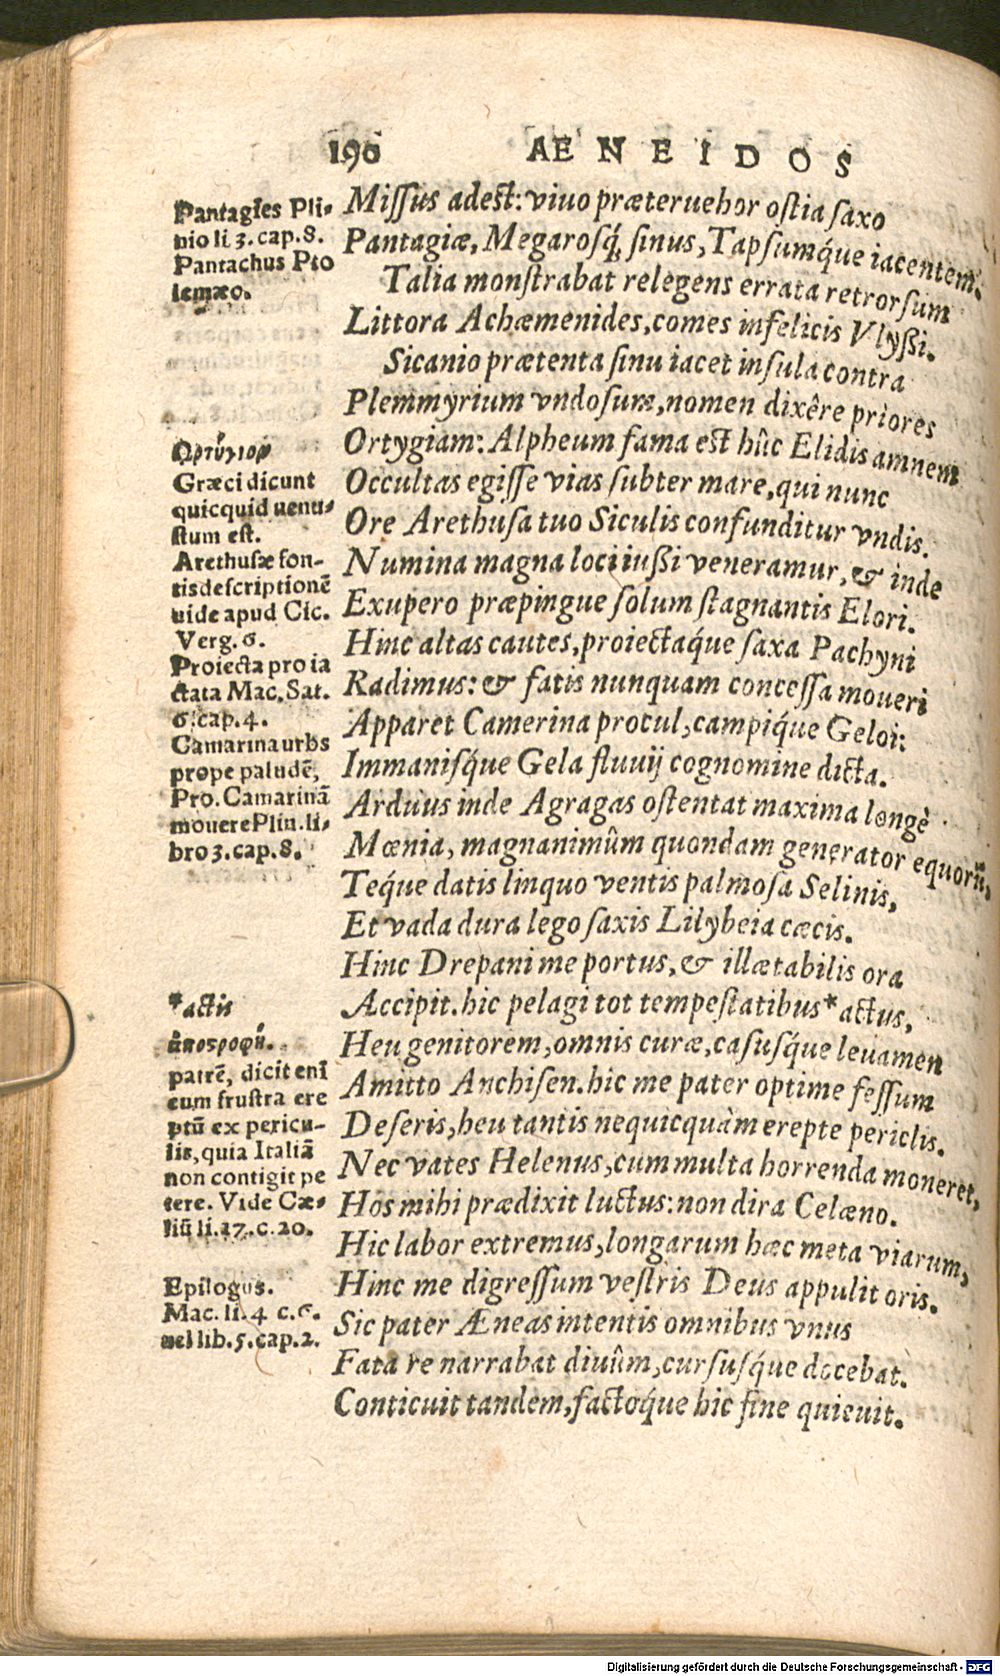 190 AENEIDOS
Missus adest: viuo præteruehor ostia saxo
Pantagiæ, Megarosq́; sinus, Tapsumq́ue iacentem.
Talia monstrabat relegens errata retrorsum
Littora Achæmenides, comes infelicis Vlyßi.
Sicanio prætenta sinu iacet insula contra
Plemmyrium vndosum, nomen dixêre priores
Ortygiam: Alpheum fama est hûc Elidis amnem
Occultas egisse vias subter mare, qui nunc
Ore Arethusa tuo Siculis confunditur vndis.
Numina magna loci iußi veneramur, & inde
Exupero præpingue solum stagnantis Elori.
Hinc altas cautes, proiectaq́ue saxa Pachyni
Radimus: & fatis nunquam concessa moueri
Apparet Camerina procul, campiq́ue Geloi:
Immanisq́ue Gela fluuij cognomine dicta.
Arduus inde Agragas ostentat maxima longè
Mœnia, magnanimûm quondam generator equorũ,
Teq́ue datis linquo ventis palmosa Selinis,
Et vada dura lego saxis Lilybeia cæcis.
Hinc Drepani me portus, & illætabilis ora
Accipit. hic pelagi tot tempestatibus* actus,
Heu genitorem, omnis curæ, casusq́ue leuamen
Amitto Anchisen. hic me pater optime fessum
Deseris, heu tantis nequicquàm erepte periclis.
Nec vates Helenus, cum multa horrenda moneret,
Hos mihi prædixit luctus: non dira Celæno.
Hic labor extremus, longarum hæc meta viarum,
Hinc me digressum vestris Deus appulit oris.
Sic pater Æneas intentis omnibus vnus
Fata re narrabat diuûm, cursusq́ue docebat.
Conticuit tandem, factoq́ue hic fine quieuit.
Pantagies Pli-
nio li 3. cap. 8.
Pantachus Pto
lemæo.
Ορτύγιον
Græci dicunt
quicquid uenu-
stum est.
Arethusæ fon-
tis descriptionẽ
uide apud Cic.
Verg. 6.
Proiecta pro ia
ctata Mac. Sat.
6. cap. 4.
Camarina urbs
prope paludẽ,
Pro. Camarinã
mouere Plin. li-
bro 3. cap. 8.
*actis
ἀποστροφή.
patrẽ, dicit enĩ
eum frustra ere
ptũ ex pericu-
lis, quia Italiã
non contigit pe
tere. Vide Cæ-
liũ li. 17. c. 20.
Epilogus.
Mac. li. 4 c. 6.
uel lib. 5. cap. 2.
Digitalisierung gefördert durch die Deutsche Forschungsgemeinschaft - DFG